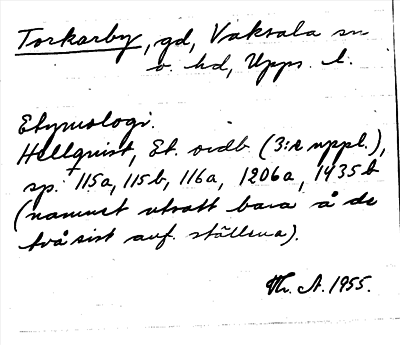 Torkarby, gd, Vaksala sn
o. hd, Upps. l.
Etymologi.
Hellquist, Et. ordb. (3:e uppl.),
sp. 115a, 115b, 116a, 1206a, 1435b
(namnet utsatt bara å de
två sist anf. ställena).
A. 1955.